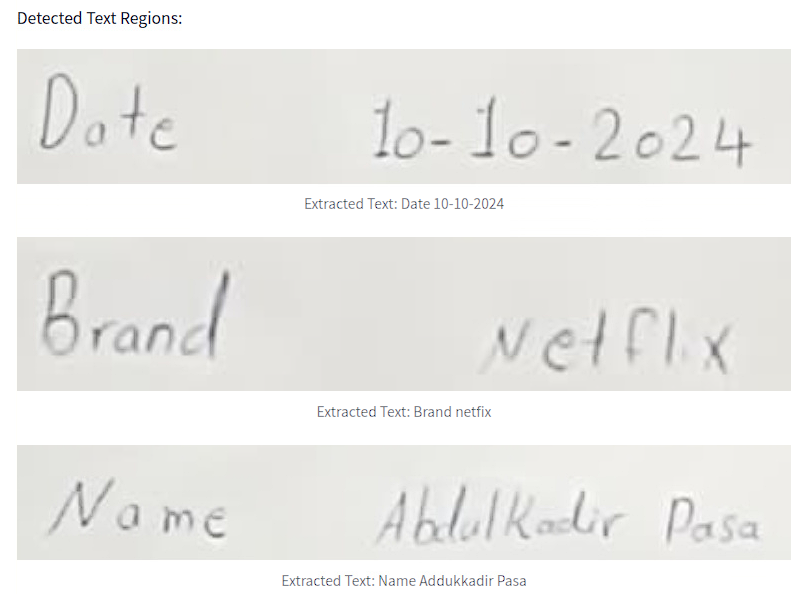 Detected Text Regions:
Date 10-10-2024
Extracted Text: Date 10-10-2024
Brand Netflix
Extracted Text: Brand netfix
Name Abdulkadir Pasa
Extracted Text: Name Addukkadir Pasa